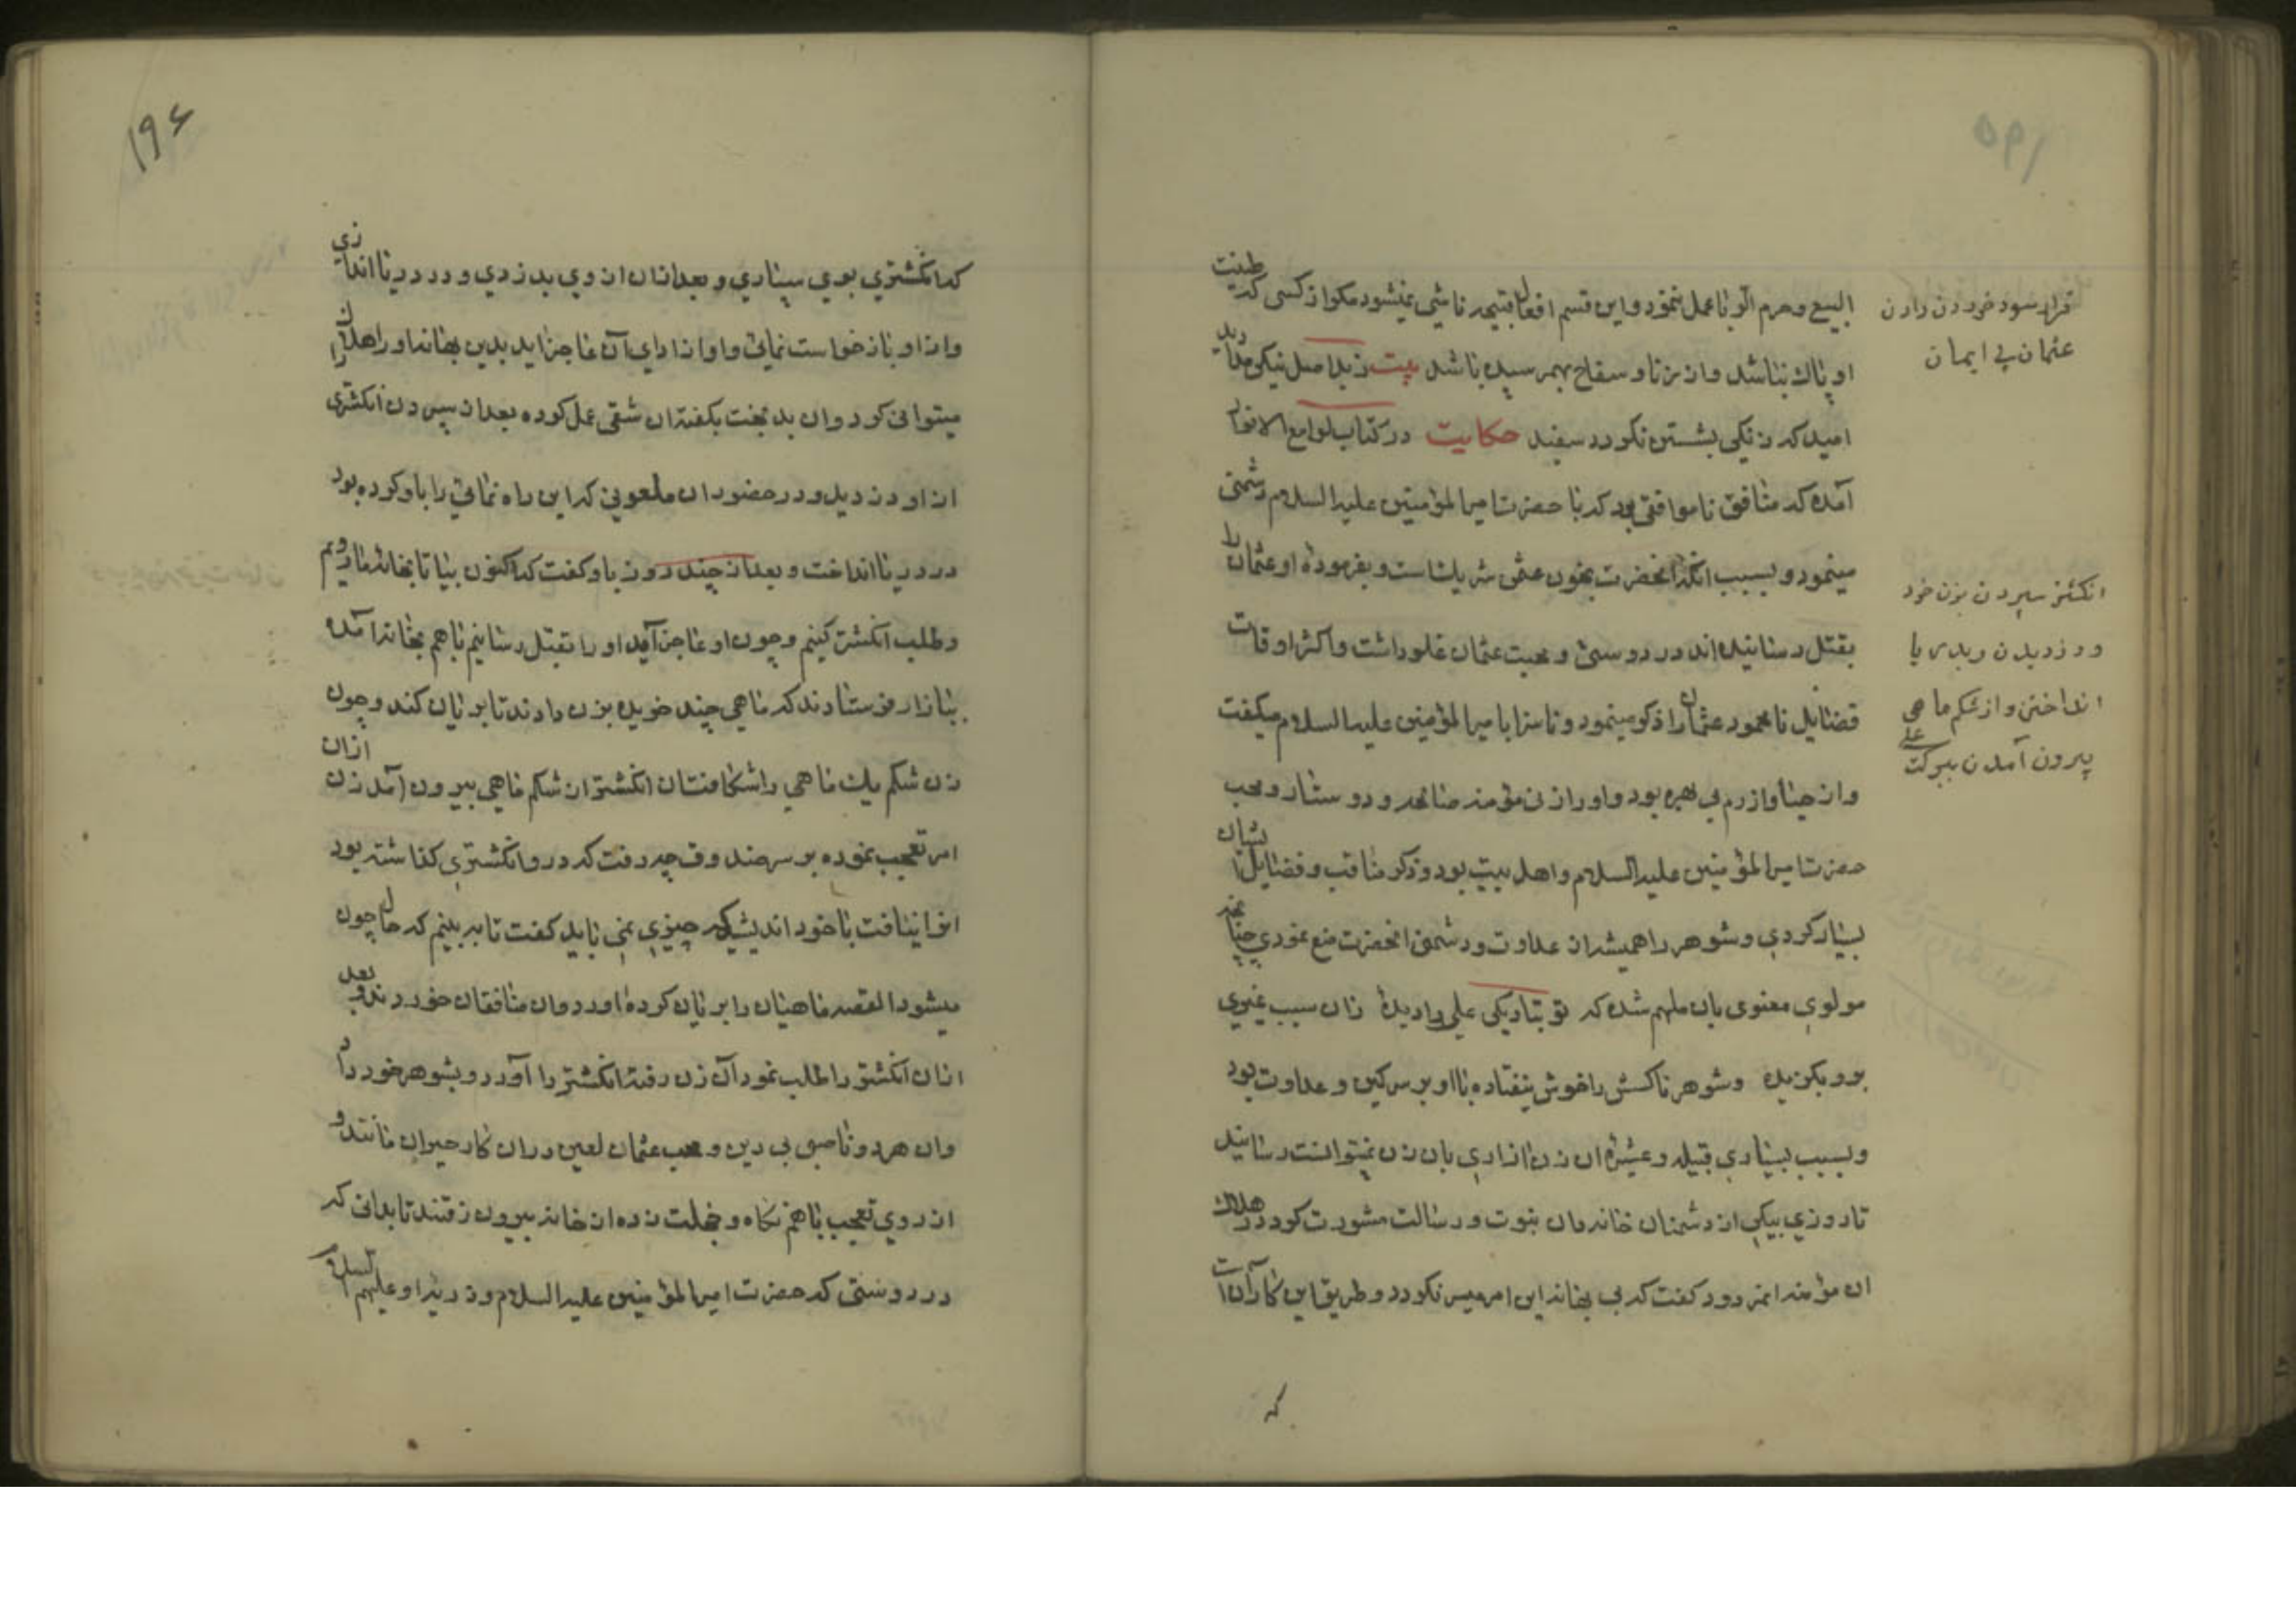 ۱۹۵
البیع و حرم الربا عمل ننمود و این قسم افعال قبیحه ناشی نمیشود مگر از کسی که طینت
او پاک نباشد و از زنا و سفاح بهمرسیده باشد بیت ز بد اصل نیکی مدارید
امید که زنگی بشستن نگردد سفید حکایت در کتاب لوامع الانوار
آمده که منافق ناموافقی بود که با حضرت امیر المؤمنین علیه السلام دشمنی
مینمود و بسبب انکه انحضرت بخون عثمن شریکست و بفرموده او عثمان را
بقتل رسانیده اند در دوستی و محبت عثمان غلو داشت و اکثر اوقات
فضایل نامحمود عثمان را ذکر مینمود و ناسزا بامیر المؤمنین علیه السلام میگفت
و از حیا و ازرم بی بهره بود و او را زنی مؤمنه صالحه و دوستار و محب
حضرت امیر المؤمنین علیه السلام و اهل بیت بود و ذکر مناقب و فضایل ایشان
بسیار کردی و شوهر را همیشه از عداوت و دشمنی انحضرت منع نمودی چنانچه
مولوی معنوی بان ملهم شده که تو بتاریکی علی را دیدۀ زان سبب غیری
برو بگزیده و شوهر ناکسش را خوش نیفتاده با او بر سر کین و عداوت بود
و بسبب بسیاری قبیله و عشیرۀ ان زن ازاری بان زن نمیتوانست رسانید
تا روزی بیکی از دشمنان خاندان نبوت و رسالت مشورت کرد در هلاک
ان مؤمنه انمردود گفت که بی بهانه این امر میسر نگردد و طریق این کار آن است
که
قرار سود خوردن دادن
عثمان بی ایمان
انکشتر سپردن بزن خود
و دزدیدن و بدریا
انداختن و از شکم ماهی
بیرون آمدن ببرکت علی
۱۹۶
که انکشتری بوی سپاری و بعد از ان از وی بدزدی و در دریا اندازی
و از او باز خواست نمائی و او از ادای آن عاجز اید بدین بهانه او را هلاک
میتوانی کرد و ان بد بخت بگفته ان شقی عمل کرده بعد از سپردن انکشتری
از او دزدید و در حضور ان ملعونی که این راه نمائی را باو کرده بود
در دریا انداخت و بعد از چند روز باو گفت که اکنون بیا تا بخانه ما رویم
و طلب انکشتر کنیم و چون او عاجز آید او را بقتل رسانیم باهم بخانه آمده
ببازار فرستادند که ماهی چند خریده بزن دادند تا بریان کند و چون
زن شکم یک ماهی را شکافت ان انکشتر از شکم ماهی بیرون آمد زن ازان
امر تعجب نموده بر سر صندوقچه رفت که درو انکشتری گذاشته بود
انرا نیافت با خود اندیشید که چیزی نمی باید گفت تا ببینم که حال چون
میشود القصه ماهیان را بریان کرده اورد و ان منافقان خوردند و بعد
ازان انکشتر را طلب نمود آن زن رفته انکشتر را آورد و بشوهر خود داد
و ان هر دو ناصبی بی دین و محب عثمان لعین دران کار حیران ماندند و
از روی تعجب باهم نگاه و خجلت زده از خانه بیرون رفتند تا بدانی که
در دوستی که حضرت امیر المؤمنین علیه السلام و ذریه او علیهم السلام